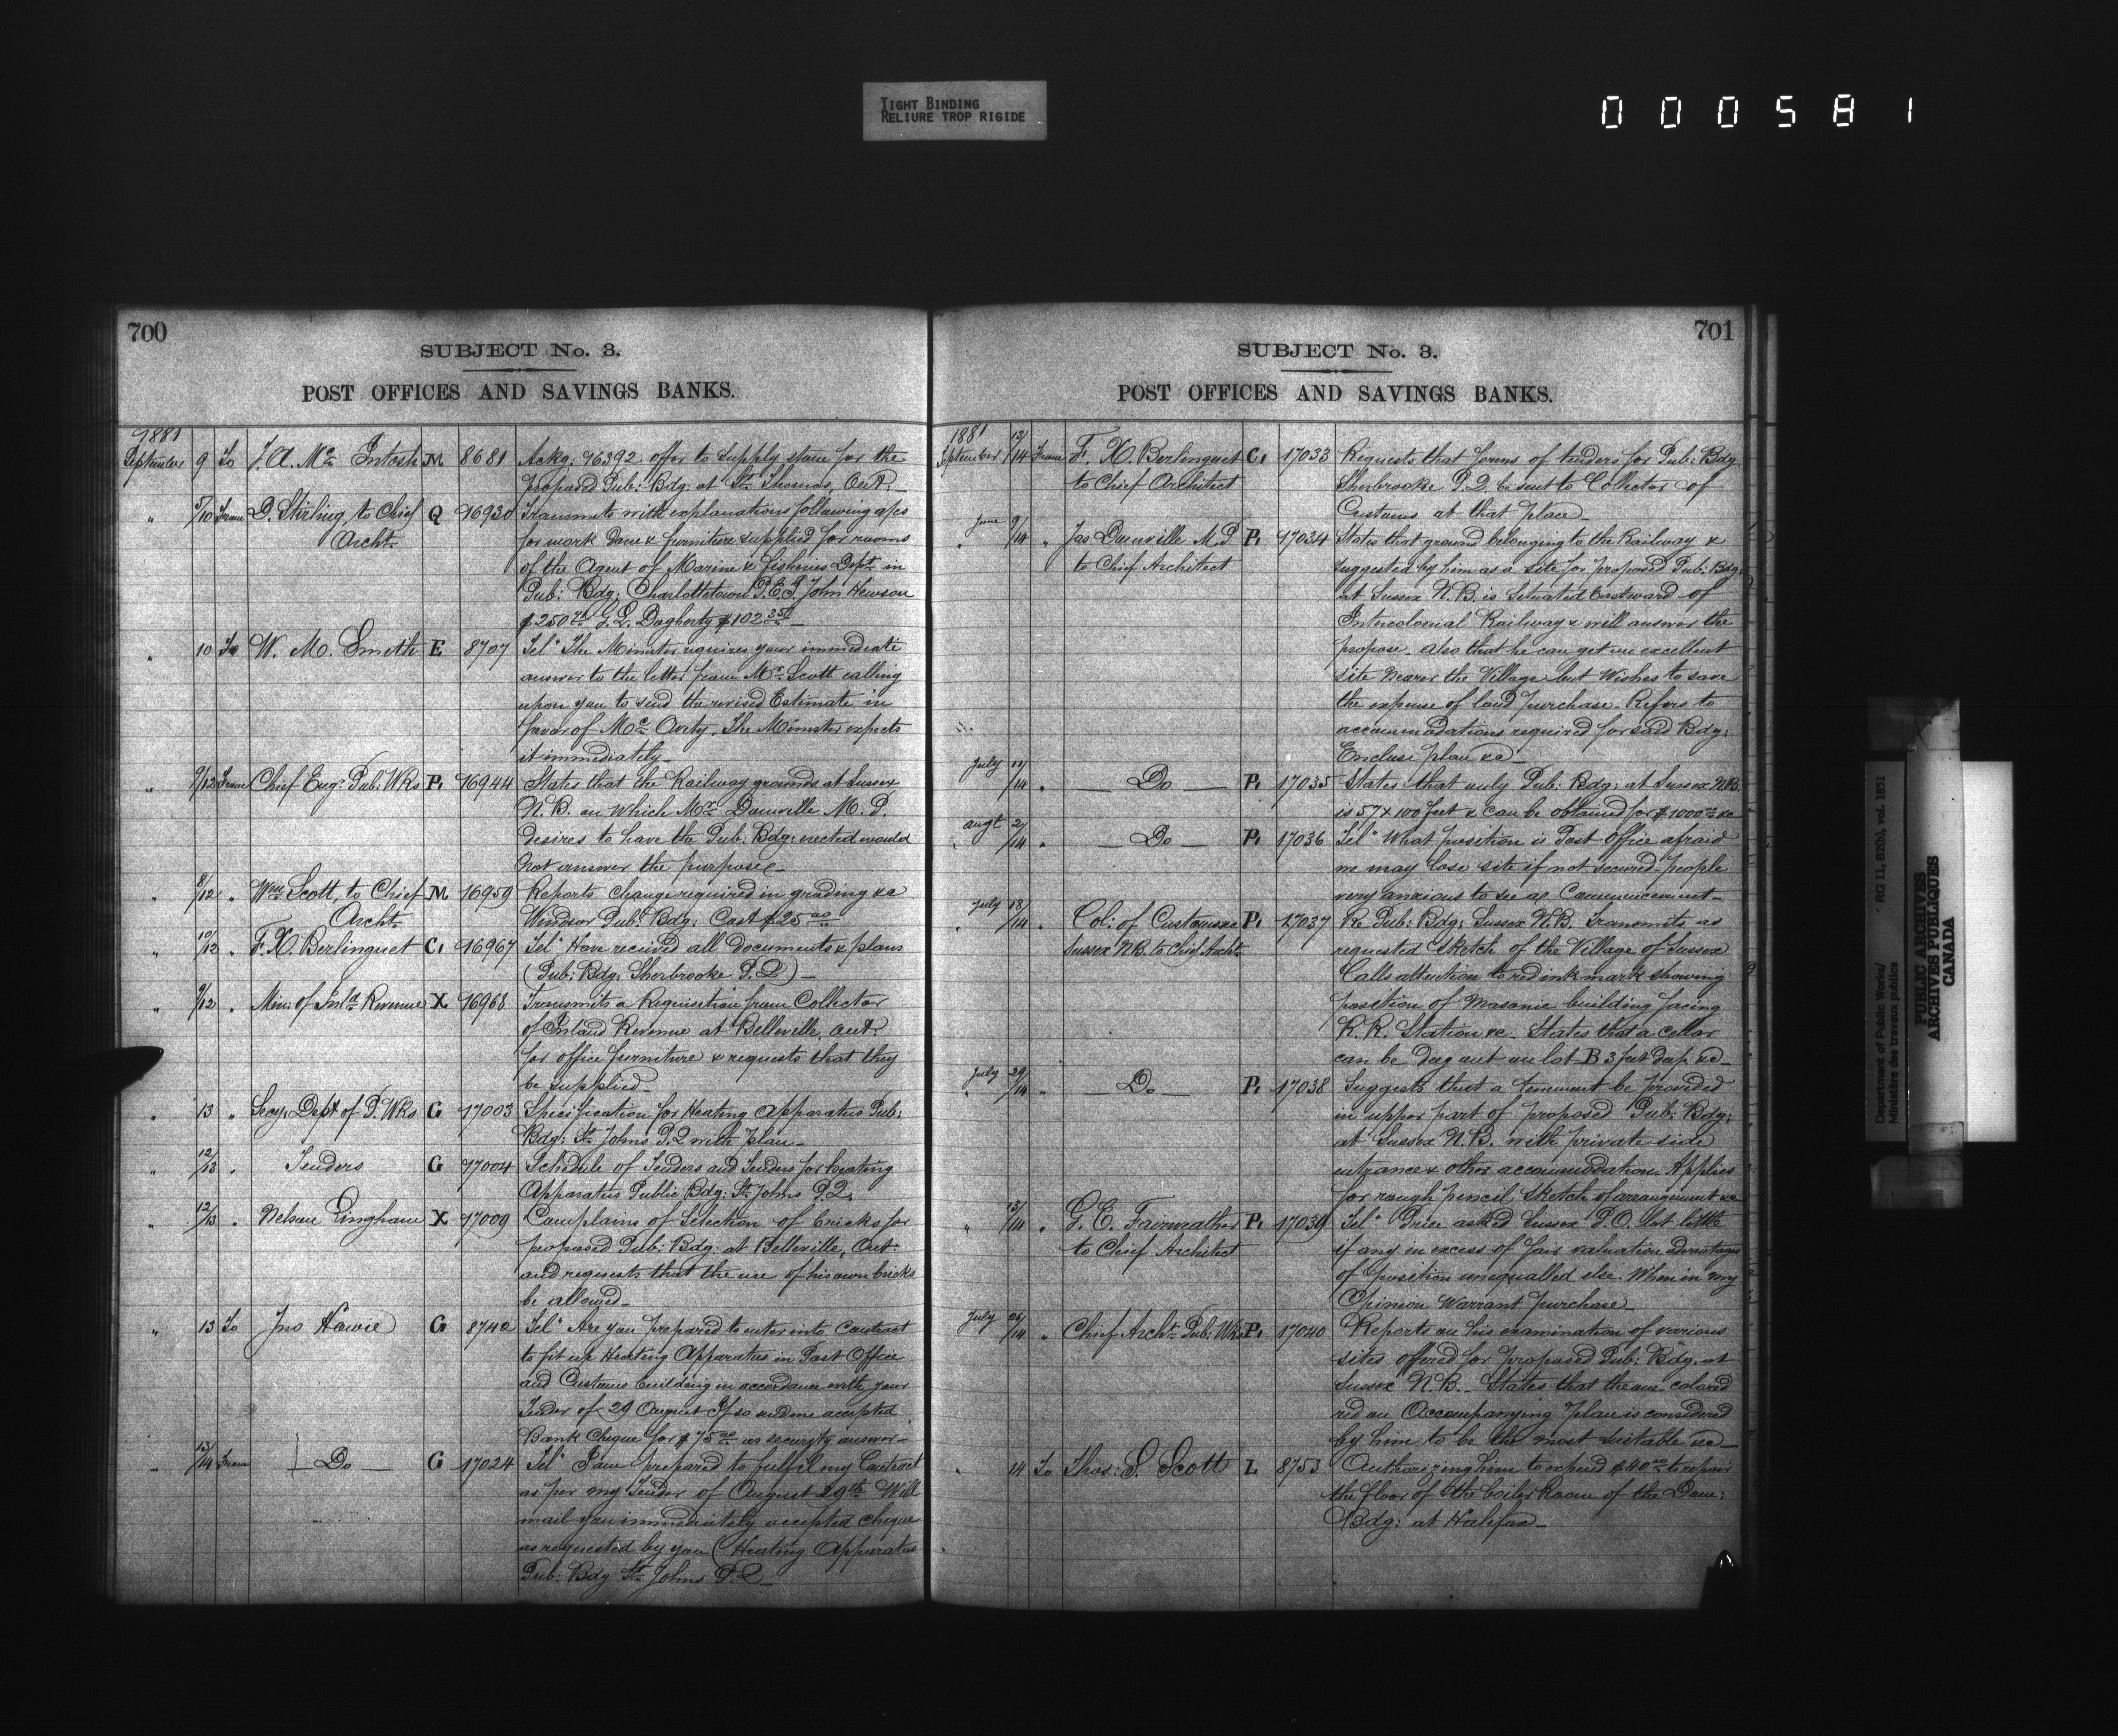 TIGHT BINDING
RELIURE TROP RIGIDE
000581
700
SUBJECT No. 3.
POST OFFICES AND SAVINGS BANKS.
1881
September 9 To J. A. Mc Intosh M 8681 Ackg: 16392 offer to supply stone for the
proposed Pub: Bdg: at St. Thomas, Ont.
" 5/10 From D. Stirling, to Chief Q 16930 Transmits with explanations following a/cs
Archt. for work done & furniture supplied for rooms
of the Agent of Marine & Fisheries Dept. in
Pub: Bdg: Charlottetown P.E.I. John Hewson
G. L. Dogherty
" 10 To W. M. Smith E 8707 Tel" The Minister requires your immediate
answer to the letter from Mr. Scott calling
upon you to send the revised Estimate in
favor of Mc Avity. The Minister expects
it immediately
" 9/12 From Chief Engr. Pub: Wks P. 16944 States that the Railway grounds at Sussex
N.B. on which Mr. Domville M. P.
desires to have the Pub: Bdg: erected would
not answer the purpose
" 8/12 " Wm Scott, to Chief M 16959 Reports change required in grading &c
Archt. Windsor Pub: Bdg: Cost $25 00
" 10/12 " F. X. Berlinguet C. 16967 Tel" Have received all documents & plans
(Pub: Bdg: Sherbrooke P.Q)
" 9/12 " Min: of Inld. Revenue X 16968 Transmits a Requisition from Collector
of Inland Revenue at Belleville, Ont:
for office furniture & requests that they
be supplied
" 13 " Secy: Dept of P. Wks G 17003 Specification for Heating Apparatus Pub:
Bdg: St. Johns P.Q with plan
" 12/13 " Tenders G 17004 Schedule of Tenders and Tenders for heating
Apparatus Public Bdg: St. Johns P.Q.
" 12/13 " Nelson Lingham X 17009 Complains of selection of bricks for
proposed Pub: Bdg: at Belleville, Ont
and requests that the use of his own bricks
be allowed
" 13 To Jno Howie G 8740 Tel" Are you prepared to enter into Contract
to fit up Heating Apparatus in Post Office
and Customs building in accordance with your
Tender of 29 August If so send me accepted
Bank Cheque for $75 00 as security answer
" 13/14 From Do G 17024 Tel" I am prepared to fulfil my Contract
as per my Tender of August 29th Will
mail you immediately accepted cheque
as requested by you (Heating Apparatus
Pub: Bdg St. Johns P.Q
701
SUBJECT No. 3.
POST OFFICES AND SAVINGS BANKS.
1881
September 12/14 From F. X. Berlinguet C. 17033 Requests that forms of tenders for Pub: Bdg
to Chief Architect Sherbrooke P.Q. be sent to Collector of
Customs at that place
June 9/14 " Jas Domville M.P P. 17034 States that ground belonging to the Railway &
to Chief Architect suggested by him as a site for proposed Pub: Bdg:
at Sussex N.B. is situated Eastward of
Intercolonial Railway & will answer the
propose. also that he can get an excellent
site nearer the Village but wishes to save
the expense of land purchase. Refers to
accommodations required for said Bdg:
Enclose plan &c
July 11/14 " Do P. 17035 States that only Pub: Bdg: at Sussex N.B.
is 57 x 100 feet & can be obtained for $1000 00 &c
augt 2/14 " Do P. 17036 Tel" What position is Post Office afraid
we may lose site if not secured people
very anxious to see a Commencement
July 18/14 " Col: of Customs P. 17037 Re Pub: Bdg: Sussex N.B. Transmits as
Sussex N.B. to Chief Archt. requested sketch of the Village of Sussex
Calls attention to red ink mark showing
position of Masonic building facing
R.R. Station &c. States that a cellar
can be dug out on lot B 3 feet deep &c
July 29/14 " Do P. 17038 Suggests that a tenement be provided
in upper part of proposed Pub: Bdg:
at Sussex N.B. with private side
entrance & other accommodation. Applies
for rough pencil sketch of arrangement &c
" 13/14 " G. E. Fairweather P. 17039 Tel" Price asked Sussex P.O. lot little
to Chief Architect if any in excess of fair valuation advantages
of position unequalled else Where in my
Opinion warrant purchase
July 26/14 " Chief Archt. Pub: Wks P. 17040 Reports on his examination of various
sites offered for proposed Pub: Bdg. at
Sussex N.B. States that the one colored
red on Accompanying plan is considered
by him to be the most suitable &c
" 14 To Thos: S. Scott L 8753 Authorizing him to expend $40 00 to repair
the floor of the boiler Room of the Dom:
Bdg: at Halifax
Department of Public Works/
Ministère des travaux publics
RG 11, B2(b), vol. 1851
PUBLIC ARCHIVES
ARCHIVES PUBLIQUES
CANADA